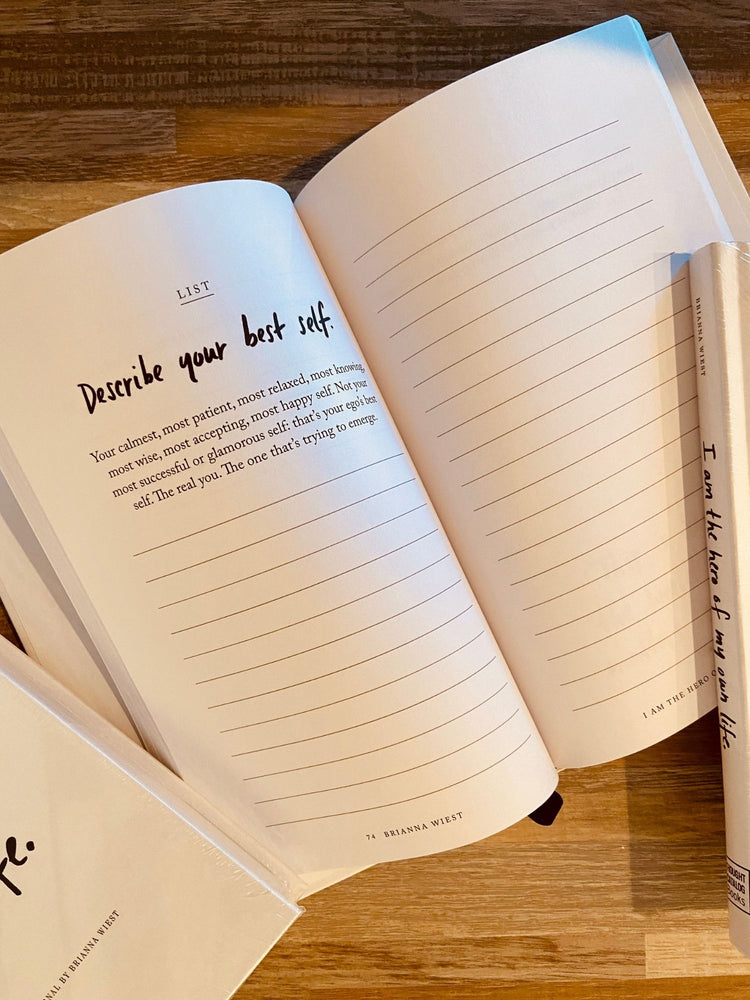 LIST
Describe your best self.
Your calmest, most patient, most relaxed, most knowing,
most wise, most accepting, most happy self. Not your
most successful or glamorous self: that's your ego's best
self. The real you. The one that's trying to emerge.
74 BRIANNA WIEST
I AM THE HERO
BRIANNA WIEST
I am the hero of my own life.
BY BRIANNA WIEST